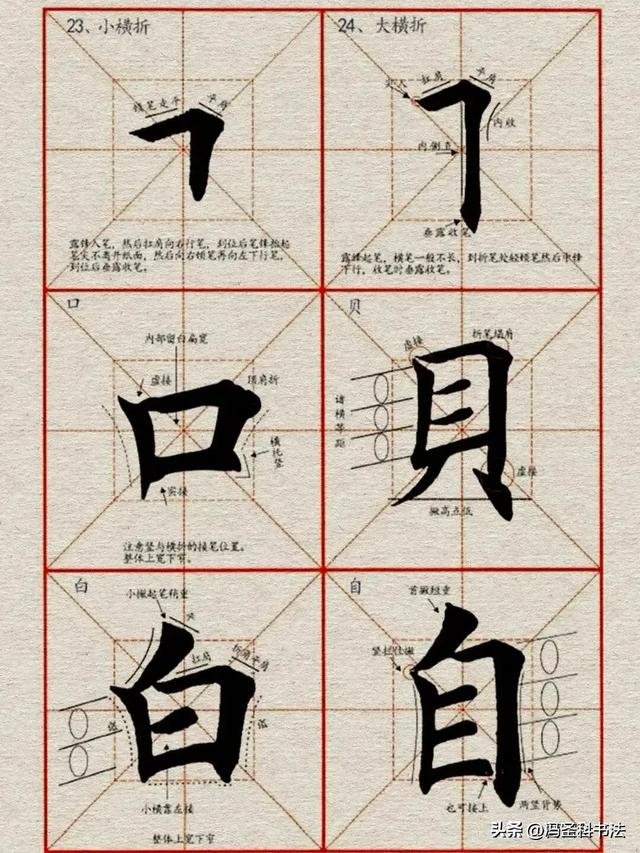 23、小横折
锋笔走平
平肩
露锋入笔，然后扛肩向右行笔，到位后笔锋抬起
笔尖不离开纸面，然后向右顿笔再向左下行笔，
到位后垂露收笔。
24、大横折
尖入
扛肩
平肩
内收
内侧直
垂露收笔
露锋起笔，横笔一般不长，到折笔处轻顿笔然后中锋
下行，收笔时垂露收笔。
口
内部留白扁宽
虚接
顶肩折
横托竖
实接
口
注意竖与横折的接笔位置。
整体上宽下窄。
贝
虚接
折笔塌肩
诸横等距
貝
虚接
撇高点低
白
小撇起笔稍重
扛肩
折角平肩
白
小横靠左接
整体上宽下窄
自
首撇短重
竖拦住撇
自
也可接上
两竖背势
头条 @冯圣科书法